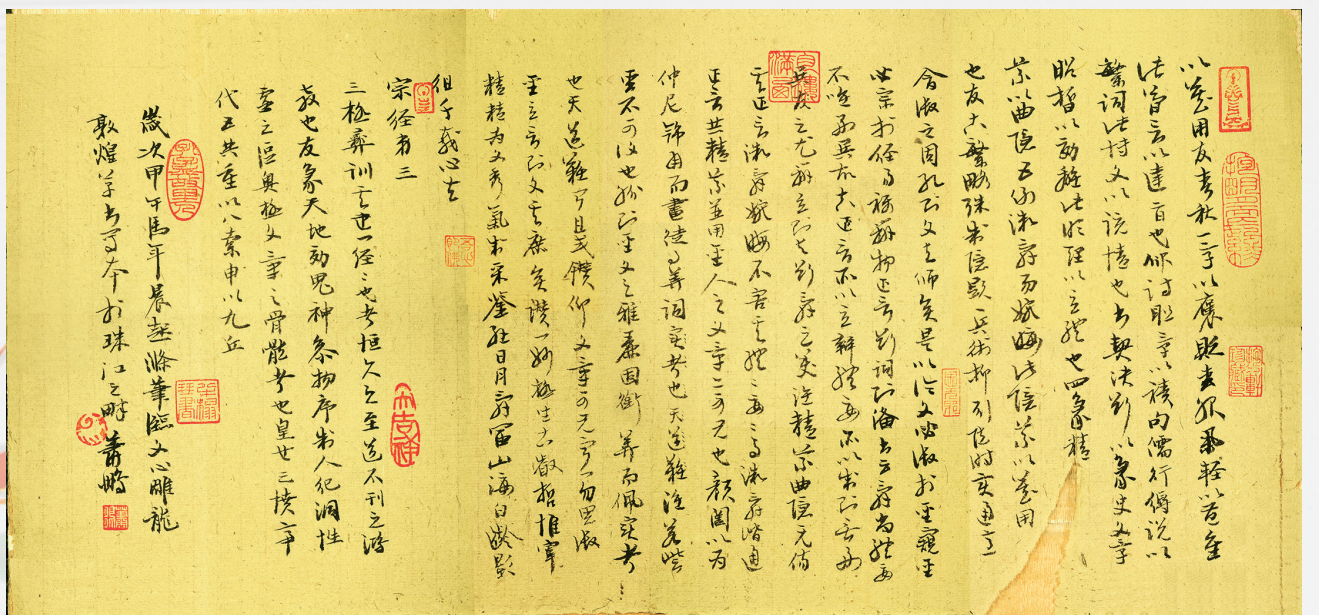 以蔵用友春秋一字以褒貶喪服舉輕以苞重
此簡言以達旨也邠詩聯章以積句儒行縟說以
繁詞此博文以該情也書契決斷以象夬文章
昭晢以効離此明理以立體也四象精
義以曲隱五例微辭而婉晦此隱義以蔵用
也友知繁略殊制隱顯異術抑引隨時變通之
會徵之周孔則文有師矣是以論文必徵於聖窺聖
必宗於經易稱辯物正言斷詞則備書云辭尚體要
不唯好異故知正言所以立辯體要所以成則無好
異友之尤辯立則有斷辭之美雖精義曲隱無傷
其正言微辭婉晦不害其體體要與微辭偕通
正言共精義並用聖人之文章亦可見也顏闔以為
仲尼飾羽而畫徒事華詞寔者也天道難
聖不可得也然則聖文之雅麗固銜華而佩實者
也天道難聞且或鑽仰文章可見寧曰勿思徵
聖立言則文其庶矣讚曰妙極生知叡哲惟宰
精理為文秀氣成采鑒懸日月辭富山海百齡影
徂千載心在
宗經第三
三極彝訓其書曰經經也者恒久之至道不刊之鴻
教也友象天地効鬼神參物序制人紀洞性
靈之區奧極文章之骨髓者也皇世三墳帝
代五典重以八索申以九丘
歲次甲午馬年晨起滌筆臨文心雕龍
敦煌草書寫本於珠江之畔蕭鵬